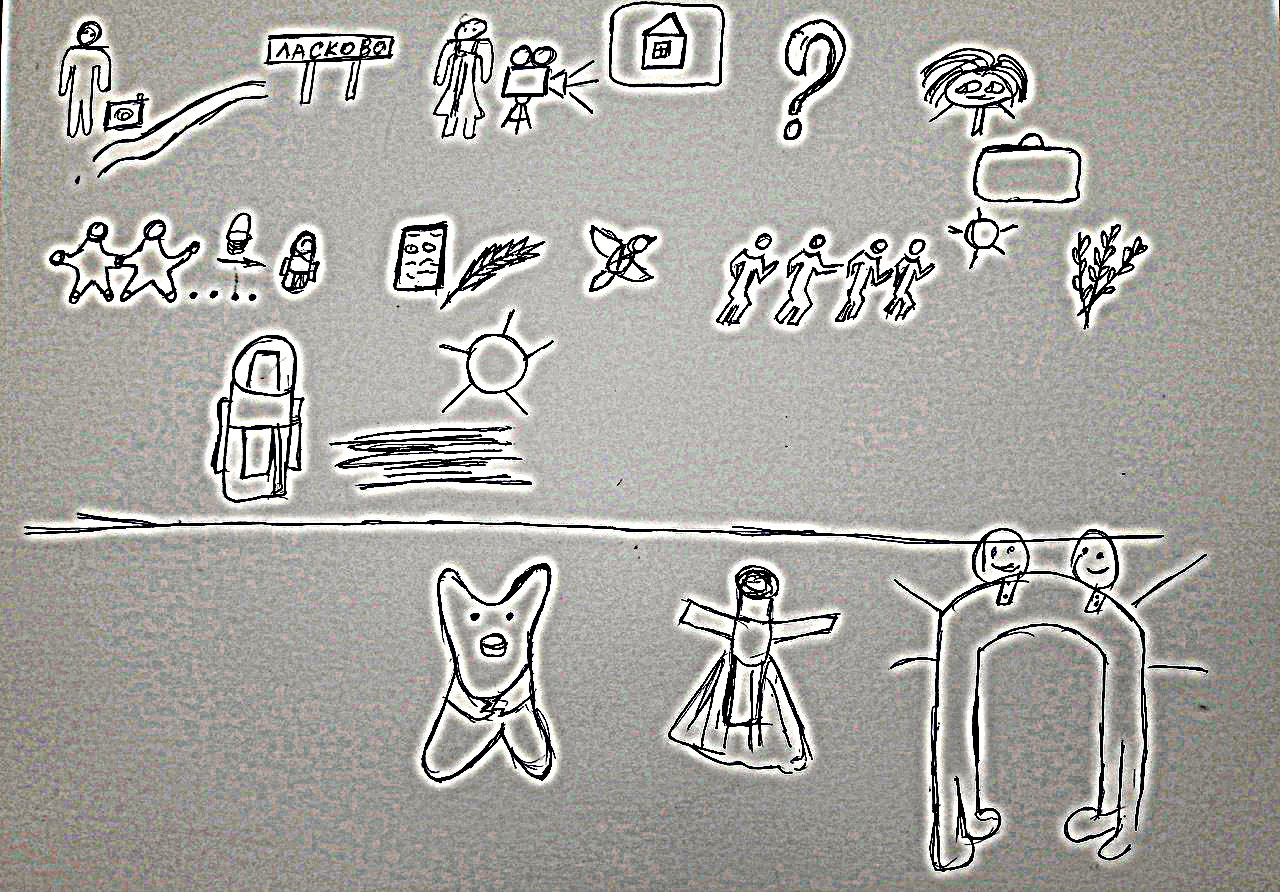 ЛАСКОВО
?